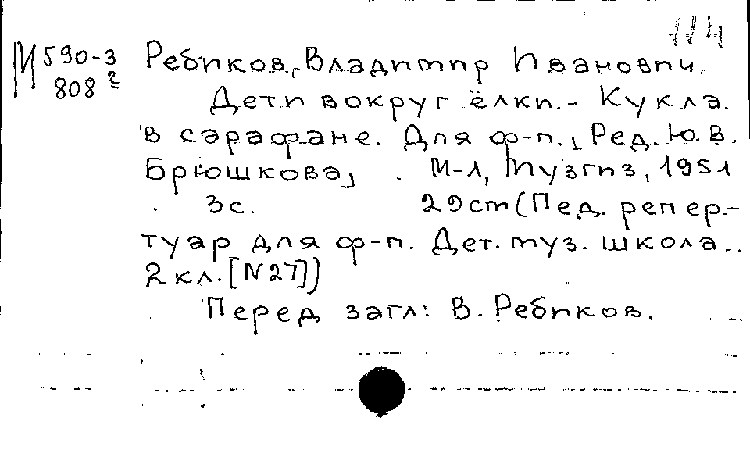 М 590-3 Ребиков, Владимир Иванович.
808г Дети вокруг ёлки. - Кукла
в сарафане. Для ф-п., Ред. Ю.В.
Брюшкова, . М-Л, Музгиз, 1951
3с. 29cm (Пед. репер-
туар для ф-п. Дет. муз. школа..
2 кл. [N27])
Перед загл: В. Ребиков.